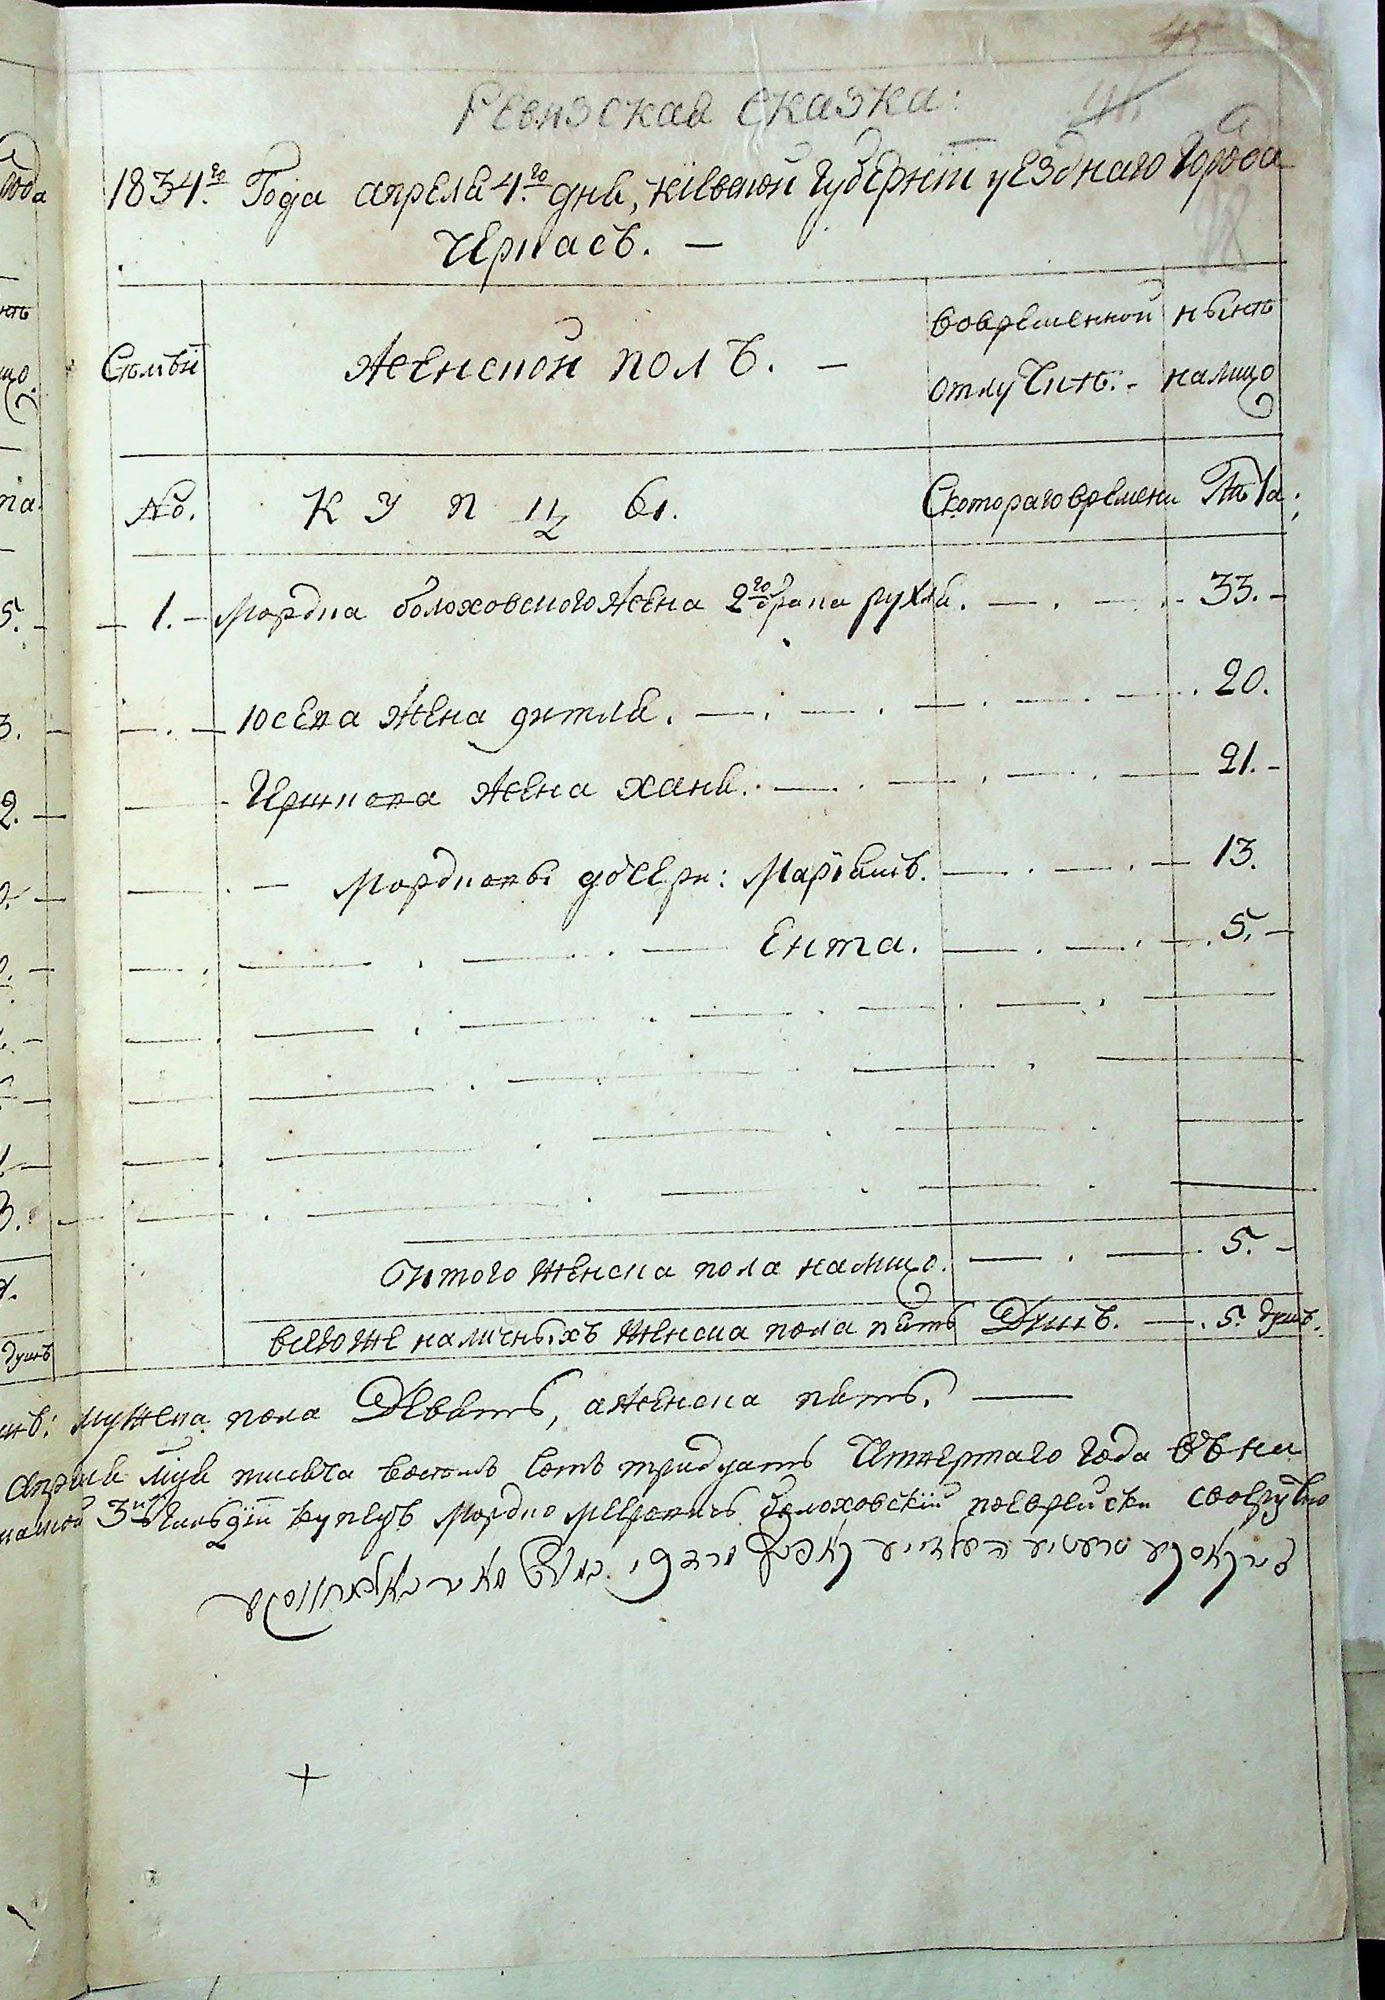 Ревизская Сказка:
1834.го Года апреля 4.го дня, Кіевской Губерніи уезднаго Города
Черкасъ. —
Семьи
Женской полъ. —
вовременной отлучкѣ. -
нынѣ налицо
No.
К У П Ц Ы.
Скотораго времени
Лѣта;
1. - Мордка болоховского Жена 2го брака рухля. — 33. -
Иосепа Жена дитля. — 20.
Гершкова Жена Хана. — 21. -
Мордковы дочери: Маріямъ. — 13.
Ента. — 5. -
Итого Женска пола налицо. — 5. -
всегоже наличныхъ Женска пола пять Душъ. — 5. душъ.
мужска пола Девять, аженска пять. —
Апреля дня тысяча восемь сотъ тридцать Четвертаго Года въ
3й Гильдіи купецъ Мордко болоховскій поеврейски своеручно